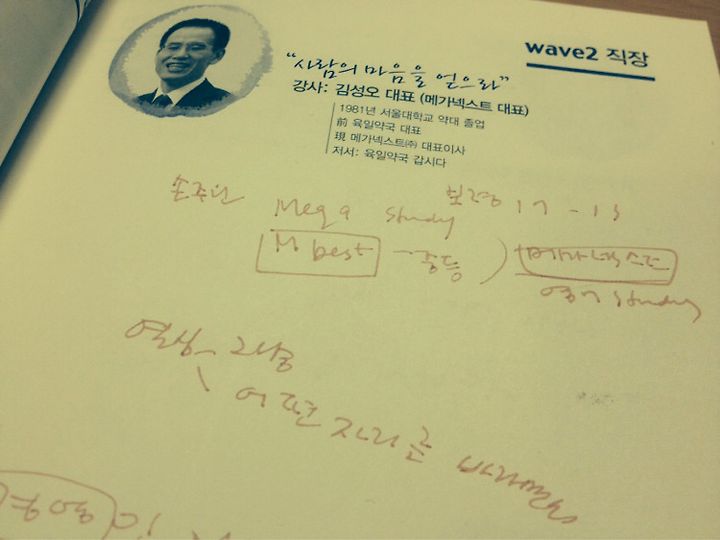 wave2 직장
"사람의 마음을 얻으라"
강사: 김성오 대표 (메가넥스트 대표)
1981년 서울대학교 약대 졸업
前 육일약국 대표
現 메가넥스트㈜ 대표이사
저서: 육일약국 갑시다
손주단 Mega study 17-13
M best - 중등 ) 메가넥스트
영어 study
열심
어떤 자리를